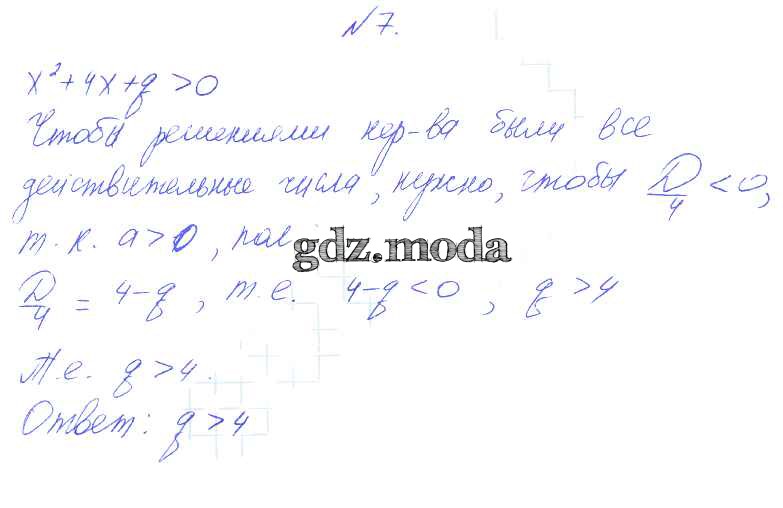 №7.
x²+4x+q>0
Чтобы решениями нер-ва были все
действительные числа, нужно, чтобы D/4<0,
т.к. a>0, пол
gdz.moda
D/4 = 4-q, т.е. 4-q<0, q>4
Т.е. q>4.
Ответ: q>4